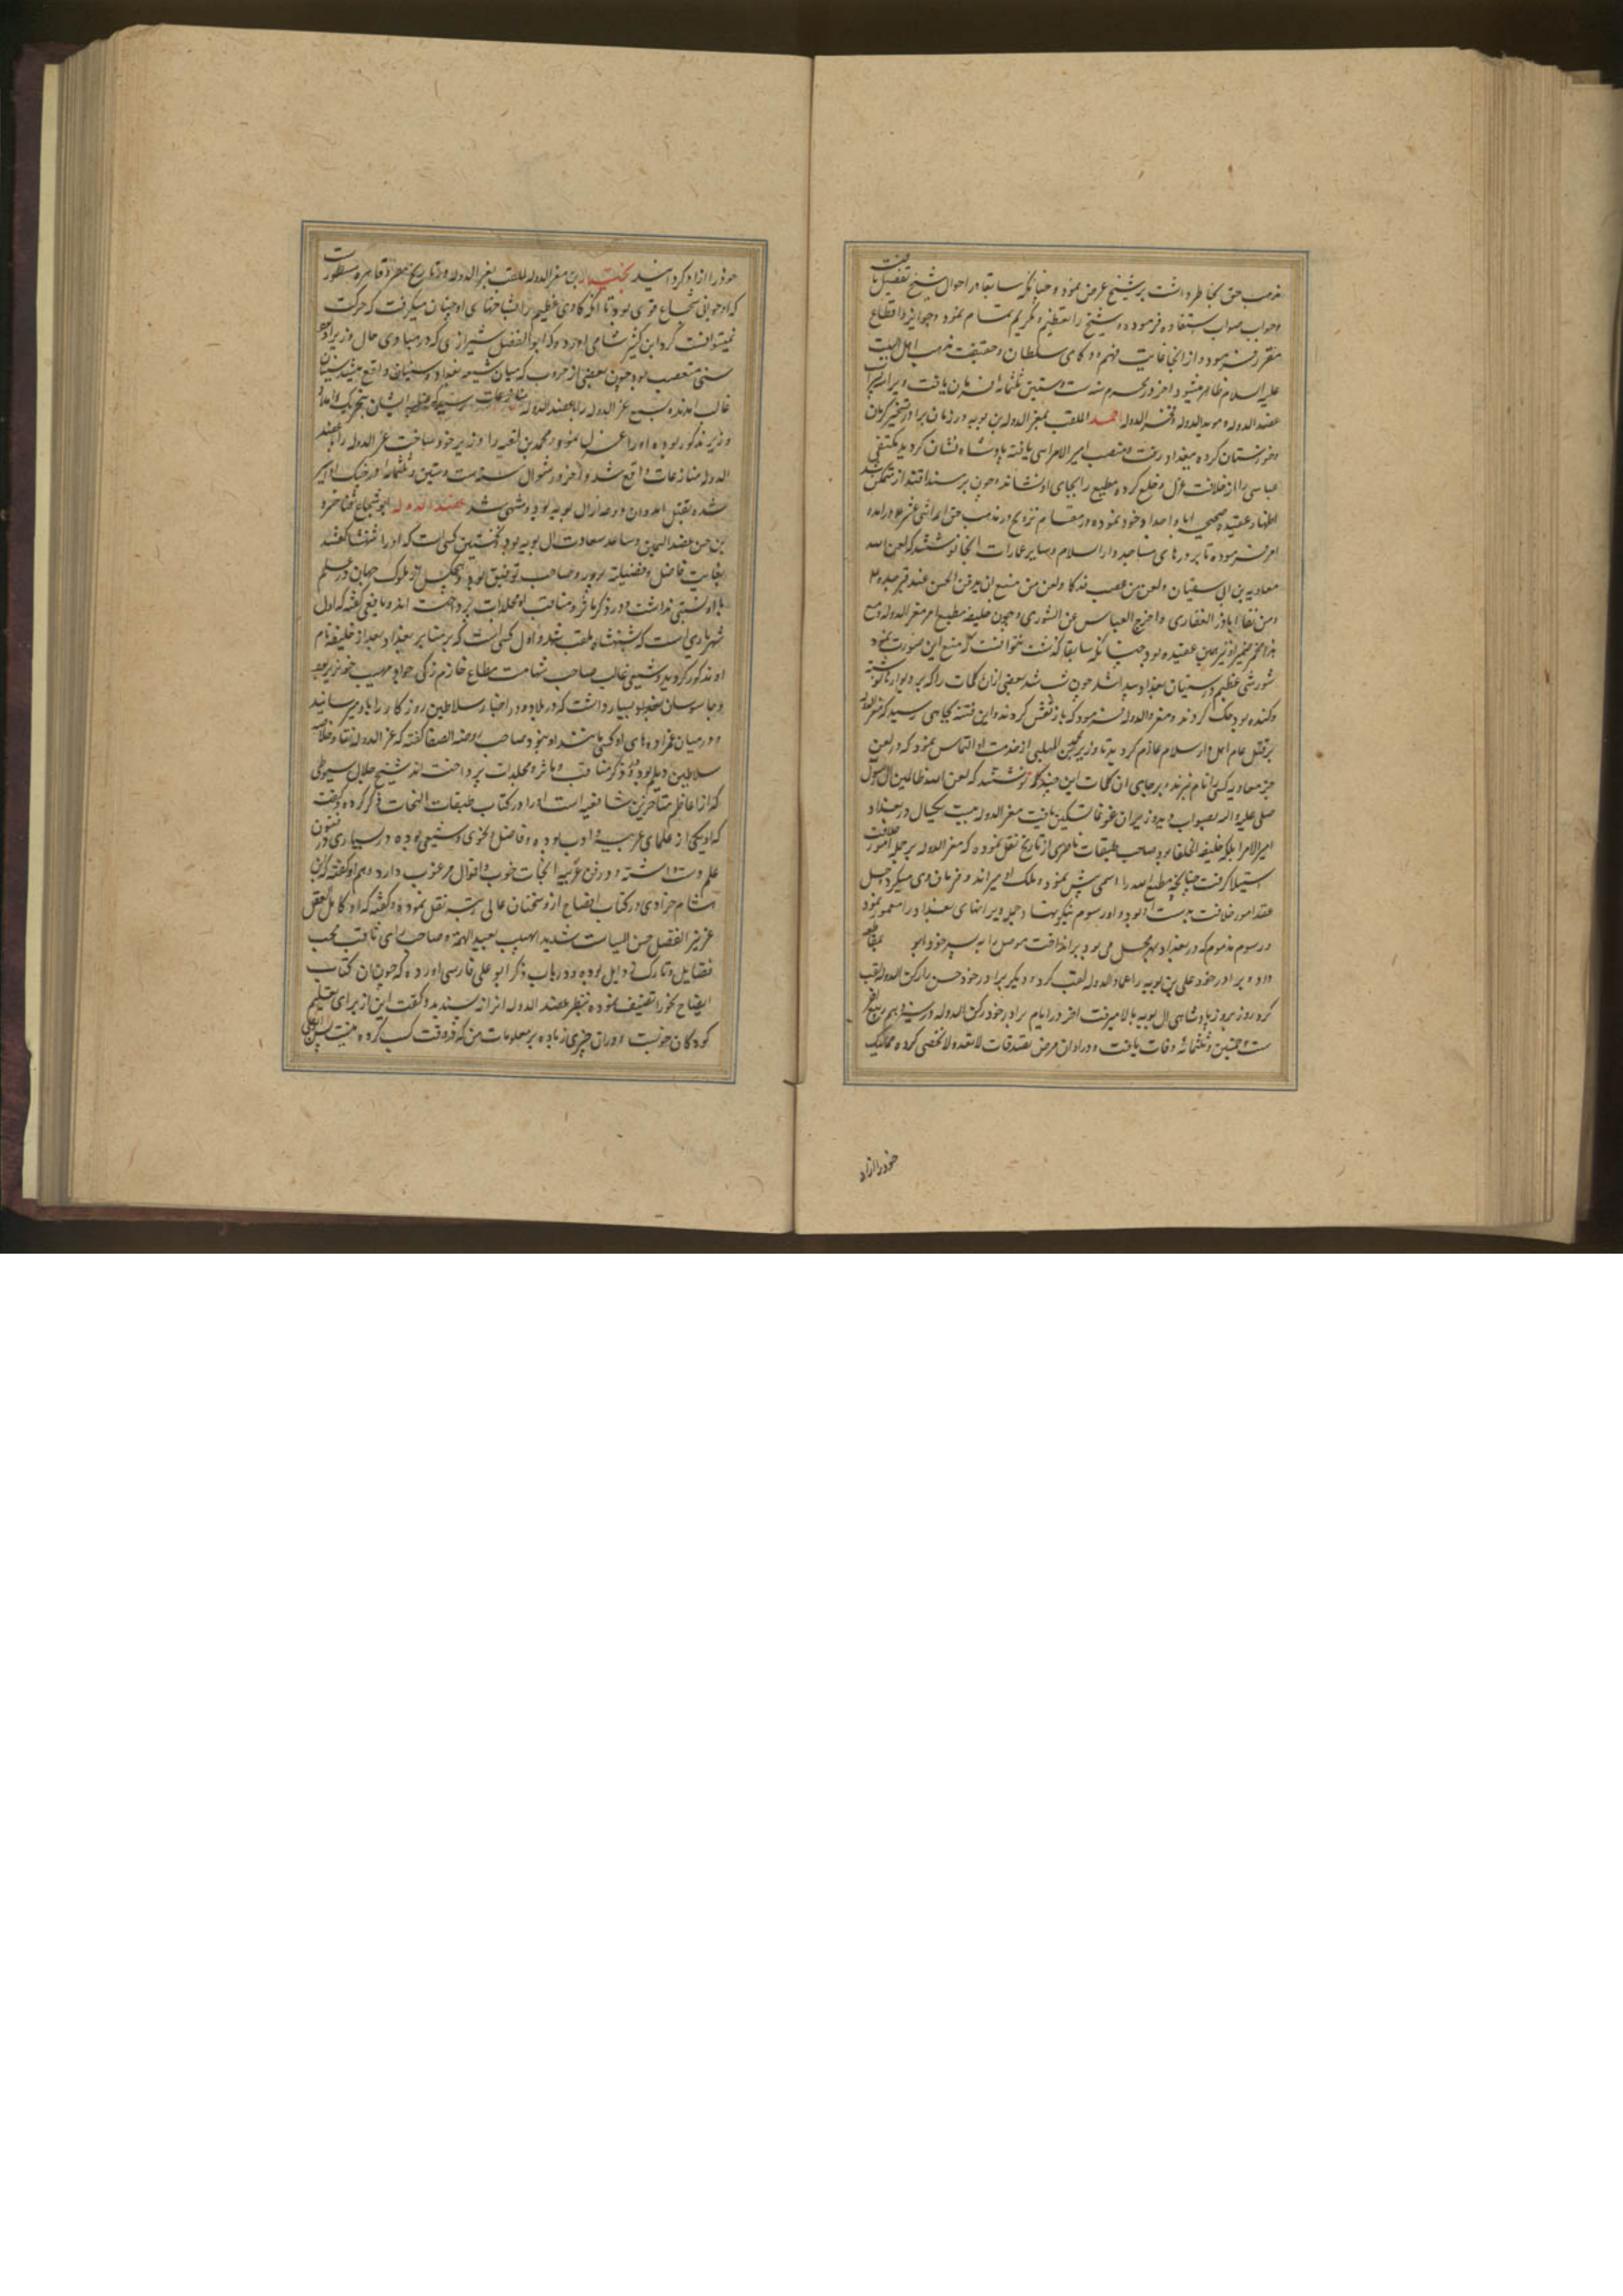 مذهب حق بخاطر داشت بر شیخ عرض نمود و چنانکه سابقا در احوال شیخ تفصیل یافت
و جواب صواب استفاده فرموده و شیخ را تعظیم و تکریم تمام نمود و جوایز و اقطاع
مقرر فرمود و از آنجا غایت فهم و ذکای سلطان و حقیقت مذهب اهل البیت
علیه السلام ظاهر میشود و اخر در محرم سنه ست و ستین و ثلثمائه فرمان یافت و پسران
عضد الدوله و موید الدوله و فخر الدوله احمد الملقب بمعز الدوله بن بویه در زمان برادر تسخیر کرمان
و خوزستان کرده ببغداد رفت و منصب امیر الامرایی یافته پادشاه نشان کردید مکتفی
عباسی را از خلافت عزل و خلع کرده مطیع را بجای او نشاند و چون بر مسند اقتدار متمکن شد
اظهار عقیده صحیحه ابا و اجداد خود نموده در مقام ترویج مذهب حق ائمه اثنی عشر درامده
امر فرموده تا بر درهای مساجد دار السلام و سایر عمارات انجا نوشتند که لعن الله
معاویة بن ابی سفیان و لعن من غصب فدکا و لعن من منع ان یدفن الحسن عند قبر جده
و من نفا اباذر الغفاری و اخرج العباس عن الشوری و چون خلیفه مطیع امر معز الدوله و مع
عقیده بود چنانکه سابقا گذشت نتوانست که منع این صورت نمود
شورشی عظیم در سنیان بغداد پیدا شد چون شب شد بعضی از ان کلمات را که بر دیوارها نوشته
و کنده بود حک کردند و معز الدوله فرمود که باز نقش کردند و این فتنه بجایی رسید که معز الدوله
بر قتل عام اهل دار السلام عازم کردید تا وزیر مهلبی از خدمت او التماس نمود که در لعن
جز معاویه کسی را نام نبرند و بر جای ان کلمات این چند کلمه نوشتند که لعن الله ظالمین ال رسول
صلی علیه و اله بصواب دید وزیر ان غوغا تسکین یافت معز الدوله بیست یکسال در بغداد
امیر الامرا بلکه خلیفه الخلفا بود صاحب طبقات ناصری از تاریخ نقل نموده که معز الدوله بر جمله امور خلافت
استیلا گرفت چنانچه مطیع لله را اسمی بیش نبود و ملک او میراند و فرمان وی میکرد و حل
عقد امور خلافت بدست او بود و او رسوم نیکو نهاد و جمله ویرانهای بغداد را معمور نمود
و رسوم مذموم که در بغداد بهر محل می بود بر انداخت موصل را به پسر خود ابو
داد و برادر خود علی بن بویه را عماد الدوله لقب کرد و دیگر برادر خود حسن را رکن الدوله لقب
کرد روز بروز پادشاهی ال بویه بالا میرفت اخر در ایام برادر خود رکن الدوله در ربیع الاخر
ست و خمسین و ثلثمائه وفات یافت و در اوان مرض تصدقات لا تعد و لا تحصی کرده ممالیک
خود را ازاد
خود را ازاد کردانید بختیار بن معز الدوله الملقب بعز الدوله در تاریخ مصر و قاهره مسطور است
که او جوانی شجاع و قوی بود تا انکه کاوی عظیم را بشاخهای او چنان میگرفت که حرکت
نمیتوانست کرد ابن کثیر شامی اورده که ابو الفضل شیرازی که در مبادی حال وزیر او بود
سنی متعصب بود چون بعضی از حروب که میان شیعه بغداد و سنیان واقع میشد سنیان
غالب امدند بسمع عز الدوله رسید که غلبه ایشان بتحریک و امداد
وزیر مذکور بوده او را عزل نمود و محمد بن بقیه را وزیر خود ساخت عز الدوله را با عضد
الدوله منازعات واقع شد و اخر در شوال سنه ست و ستین و ثلثمائه در جنک او اسیر
شده بقتل امد و ان دوحه از ال بویه بود و منتهی شد عضد الدوله ابو شجاع فناخسرو
بن حسن عضد الیمین و ساعد سعادت ال بویه بود نخستین کسی است که او را شهنشاه گفتند
بغایت فاضل و فضیلة پرور و صاحب توفیق بود و هیچکس از ملوک جهان در علم
با او نسبتی نداشت و در ذکر ماثر و مناقب او مجلدات پرداخته اند و یافعی گفته که اول
شهریاری است که شهنشاه ملقب شد و اول کسی است که بر منابر بغداد بعد از خلیفه نام
او مذکور کردید و شیعی غالب صاحب شهامت مطاع حازم زکی جواد مهیب خونریز بود
و جاسوسان بسیار داشت که در بلاد و در اخبار سلاطین روزکار را باو میرسانید
و در میان عمزادهای او کسی مانند او نبود و صاحب روضة الصفا گفته که عز الدوله نقاوه و خلاصه
سلاطین دیلم بود و در ذکر مناقب و ماثر و مجلدات پرداخته اند شیخ جلال سیوطی
که از اعاظم متاخرین شافعیه است او را در کتاب طبقات النحات ذکر کرده و گفته
که او یکی از علمای عربیه و ادب بوده و فاضل و نحوی و شیعی بوده و در بسیاری از فنون
علم دست داشته و در فن عربیه ابحاث خوب و اقوال مرغوب دارد و هم او گفته که ابن
هشام خزادی در کتاب ایضاح از و سخنان عالی رتبه نقل نموده و گفته که او کامل العقل
عزیز الفضل حسن السیاست شدید الهیبه بعید الهمة و صاحب رای ثاقب محب
فضایل و تارک رذایل بوده و در باب ذکر ابو علی فارسی اورده که چون ان کتاب
ایضاح نحو را تصنیف نموده بنظر عضد الدوله انرا پسندید و گفت این از برای تعلیم
کودکان خوبست و در ان چیزی زیاده بر معلومات من که در وقت کسب کرده نیست پس ابو علی